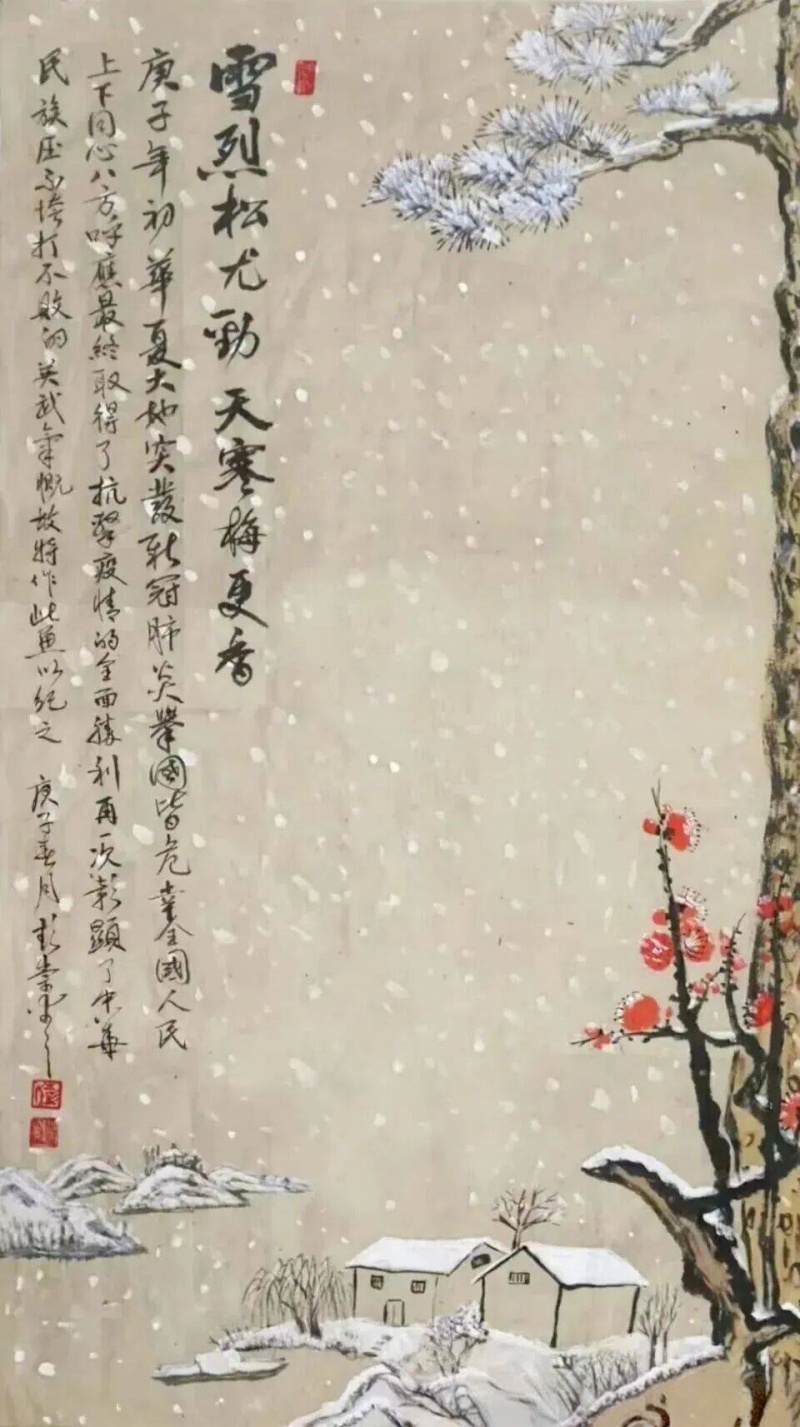 雪烈松尤勁 天寒梅更香
庚子年初華夏大地突發新冠肺炎舉國皆危幸全國人民
上下同心八方呼應最終取得了抗擊疫情的全面勝利再一次彰顯了中華
民族压不垮打不敗的英武氣慨故特作此畫以紀之 庚子春月彭